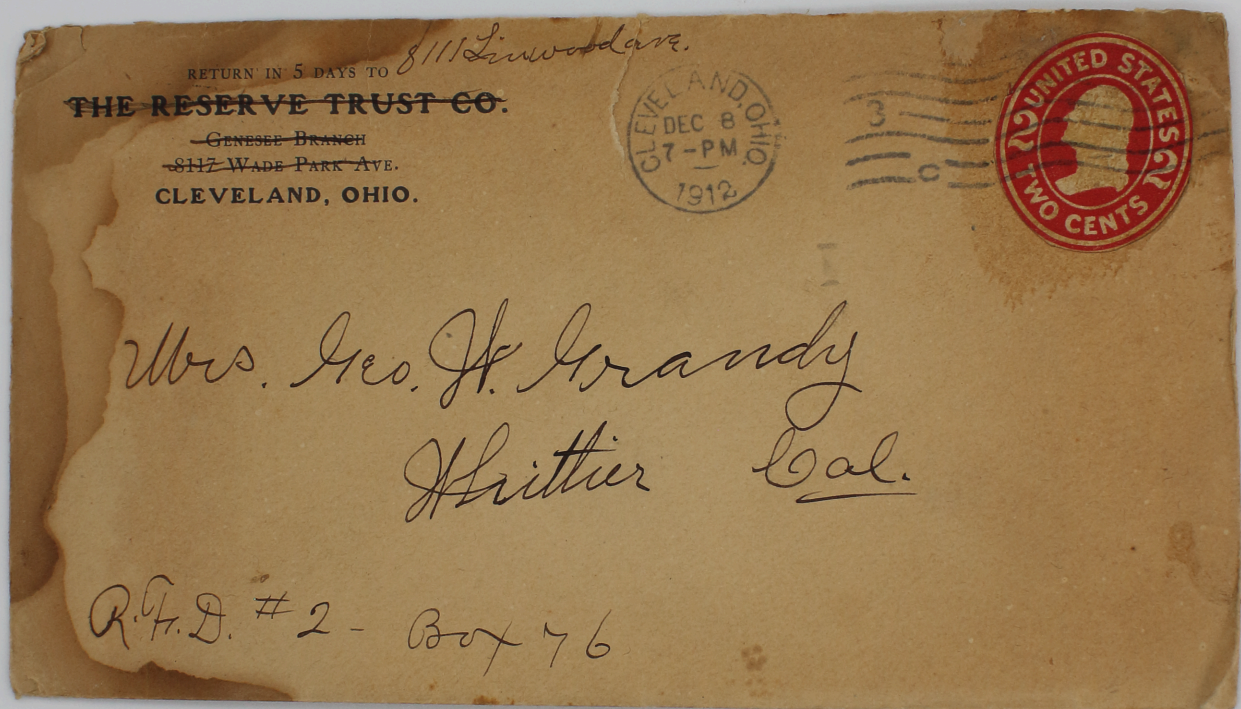 RETURN IN 5 DAYS TO 8111 Linwood ave.
THE RESERVE TRUST CO.
GENESEE BRANCH
8117 WADE PARK AVE.
CLEVELAND, OHIO.
CLEVELAND, OHIO.
DEC 8
7-PM
1912
3
C
UNITED STATES
2 2
TWO CENTS
I
Mrs. Geo. W. Grandy
Whittier Cal.
R.F.D. #2 - Box 76